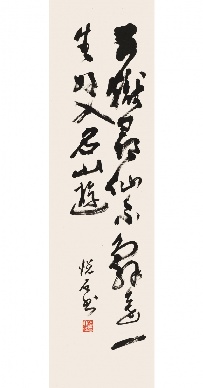 五嶽尋仙不辭遠一
生好入名山遊
悦石书